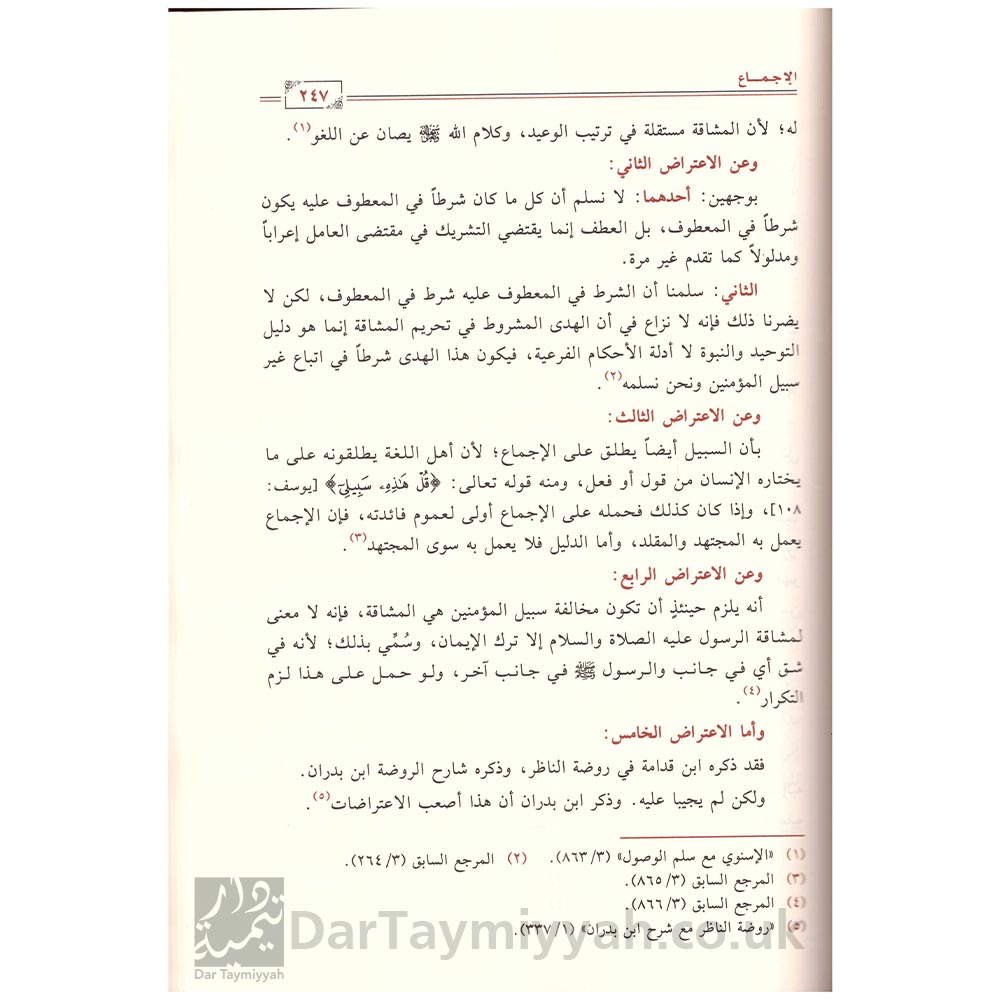 الإجماع
٢٤٧
له؛ لأن المشاقة مستقلة في ترتيب الوعيد، وكلام الله ﷻ يصان عن اللغو(١).
وعن الاعتراض الثاني:
بوجهين: أحدهما: لا نسلم أن كل ما كان شرطاً في المعطوف عليه يكون
شرطاً في المعطوف، بل العطف إنما يقتضي التشريك في مقتضى العامل إعراباً
ومدلولاً كما تقدم غير مرة.
الثاني: سلمنا أن الشرط في المعطوف عليه شرط في المعطوف، لكن لا
يضرنا ذلك فإنه لا نزاع في أن الهدى المشروط في تحريم المشاقة إنما هو دليل
التوحيد والنبوة لا أدلة الأحكام الفرعية، فيكون هذا الهدى شرطاً في اتباع غير
سبيل المؤمنين ونحن نسلمه(٢).
وعن الاعتراض الثالث:
بأن السبيل أيضاً يطلق على الإجماع؛ لأن أهل اللغة يطلقونه على ما
يختاره الإنسان من قول أو فعل، ومنه قوله تعالى: ﴿قُلْ هَٰذِهِۦ سَبِيلِيٓ﴾ [يوسف:
١٠٨]، وإذا كان كذلك فحمله على الإجماع أولى لعموم فائدته، فإن الإجماع
يعمل به المجتهد والمقلد، وأما الدليل فلا يعمل به سوى المجتهد(٣).
وعن الاعتراض الرابع:
أنه يلزم حينئذٍ أن تكون مخالفة سبيل المؤمنين هي المشاقة، فإنه لا معنى
لمشاقة الرسول عليه الصلاة والسلام إلا ترك الإيمان، وسُمِّي بذلك؛ لأنه في
شق أي في جانب والرسول ﷺ في جانب آخر، ولو حمل على هذا لزم
التكرار(٤).
وأما الاعتراض الخامس:
فقد ذكره ابن قدامة في روضة الناظر، وذكره شارح الروضة ابن بدران.
ولكن لم يجيبا عليه. وذكر ابن بدران أن هذا أصعب الاعتراضات(٥).
(١) «الإسنوي مع سلم الوصول» (٣/ ٨٦٣). (٢) المرجع السابق (٣/ ٢٦٤).
(٣) المرجع السابق (٣/ ٨٦٥).
(٤) المرجع السابق (٣/ ٨٦٦).
(٥) «روضة الناظر مع شرح ابن بدران» (١/ ٣٣٧).
دار تيمية
Dar Taymiyyah
DarTaymiyyah.co.uk